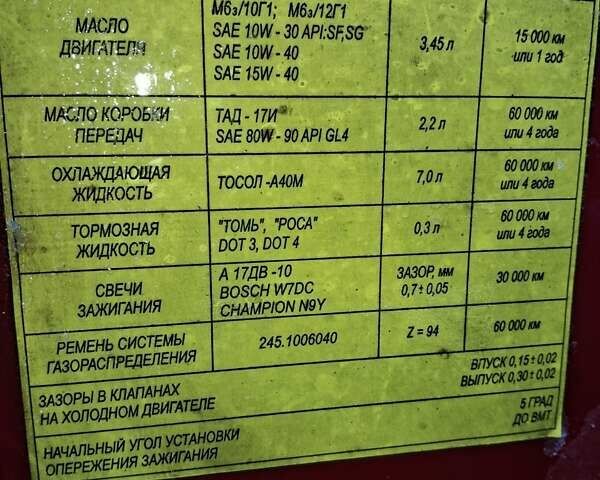 МАСЛО
ДВИГАТЕЛЯ
М6з/10Г1; М6з/12Г1
SAE 10W - 30 API:SF,SG
SAE 10W - 40
SAE 15W - 40
3,45 л
15 000 км
или 1 год
МАСЛО КОРОБКИ
ПЕРЕДАЧ
ТАД - 17И
SAE 80W - 90 API GL4
2,2 л
60 000 км
или 4 года
ОХЛАЖДАЮЩАЯ
ЖИДКОСТЬ
ТОСОЛ -А40М
7,0 л
60 000 км
или 4 года
ТОРМОЗНАЯ
ЖИДКОСТЬ
"ТОМЬ", "РОСА"
DOT 3, DOT 4
0,3 л
60 000 км
или 4 года
СВЕЧИ
ЗАЖИГАНИЯ
А 17ДВ -10
BOSCH W7DC
CHAMPION N9Y
ЗАЗОР, мм
0,7± 0,05
30 000 км
РЕМЕНЬ СИСТЕМЫ
ГАЗОРАСПРЕДЕЛЕНИЯ
245.1006040
Z = 94
60 000 км
ЗАЗОРЫ В КЛАПАНАХ
НА ХОЛОДНОМ ДВИГАТЕЛЕ
ВПУСК 0,15± 0,02
ВЫПУСК 0,30± 0,02
НАЧАЛЬНЫЙ УГОЛ УСТАНОВКИ
ОПЕРЕЖЕНИЯ ЗАЖИГАНИЯ
5 ГРАД
ДО ВМТ